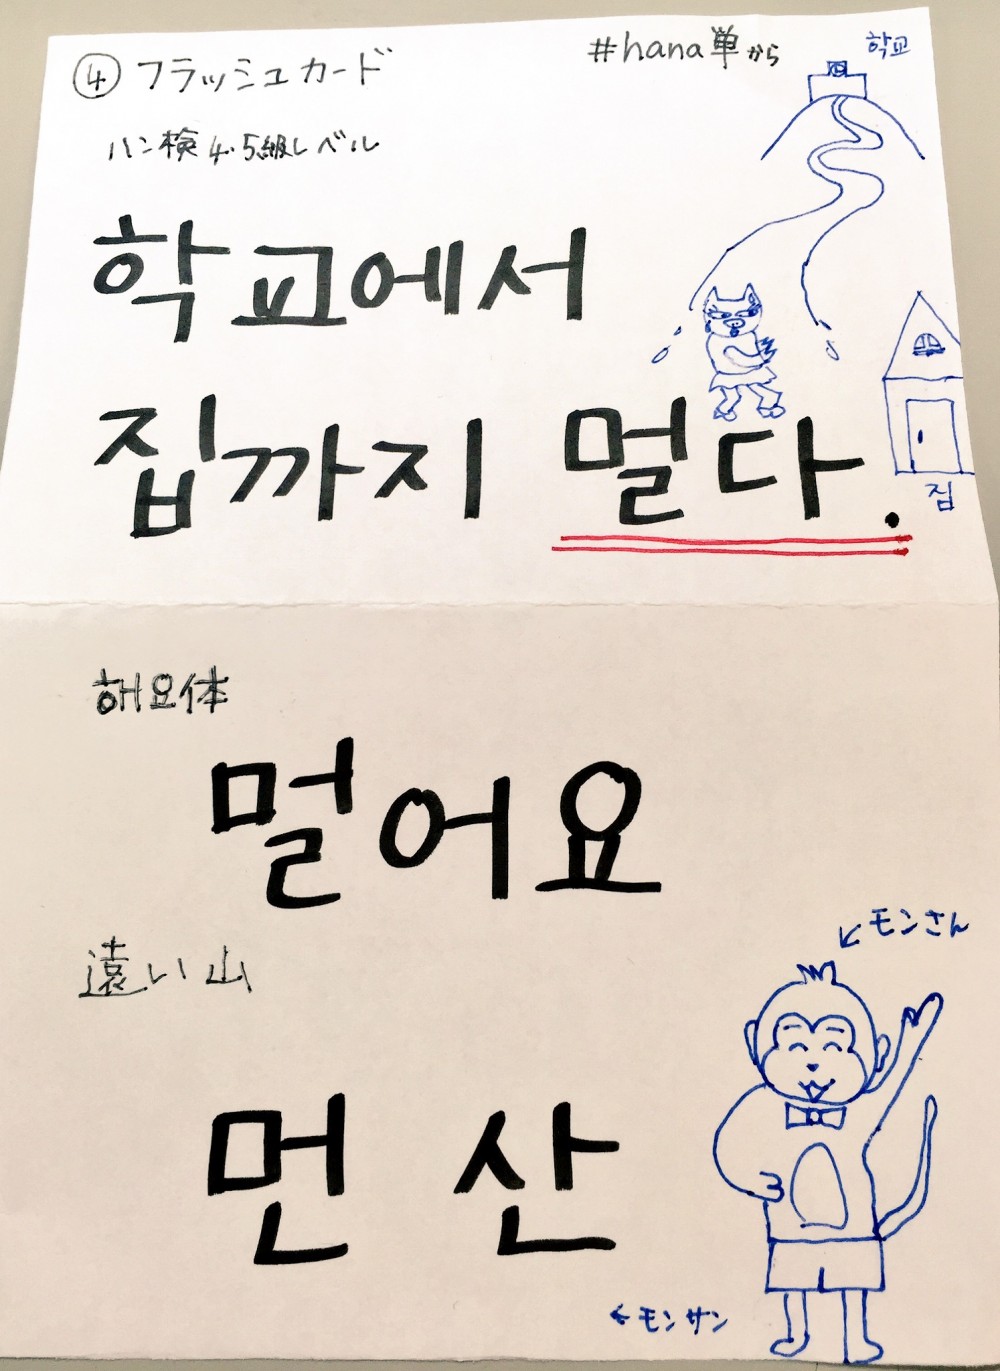 ④ フラッシュカード
#hana単から
학교
ハン検 4.5級レベル
학교에서
집까지 멀다.
집
해요体
멀어요
遠い山
↙モンさん
먼 산
←モンサン